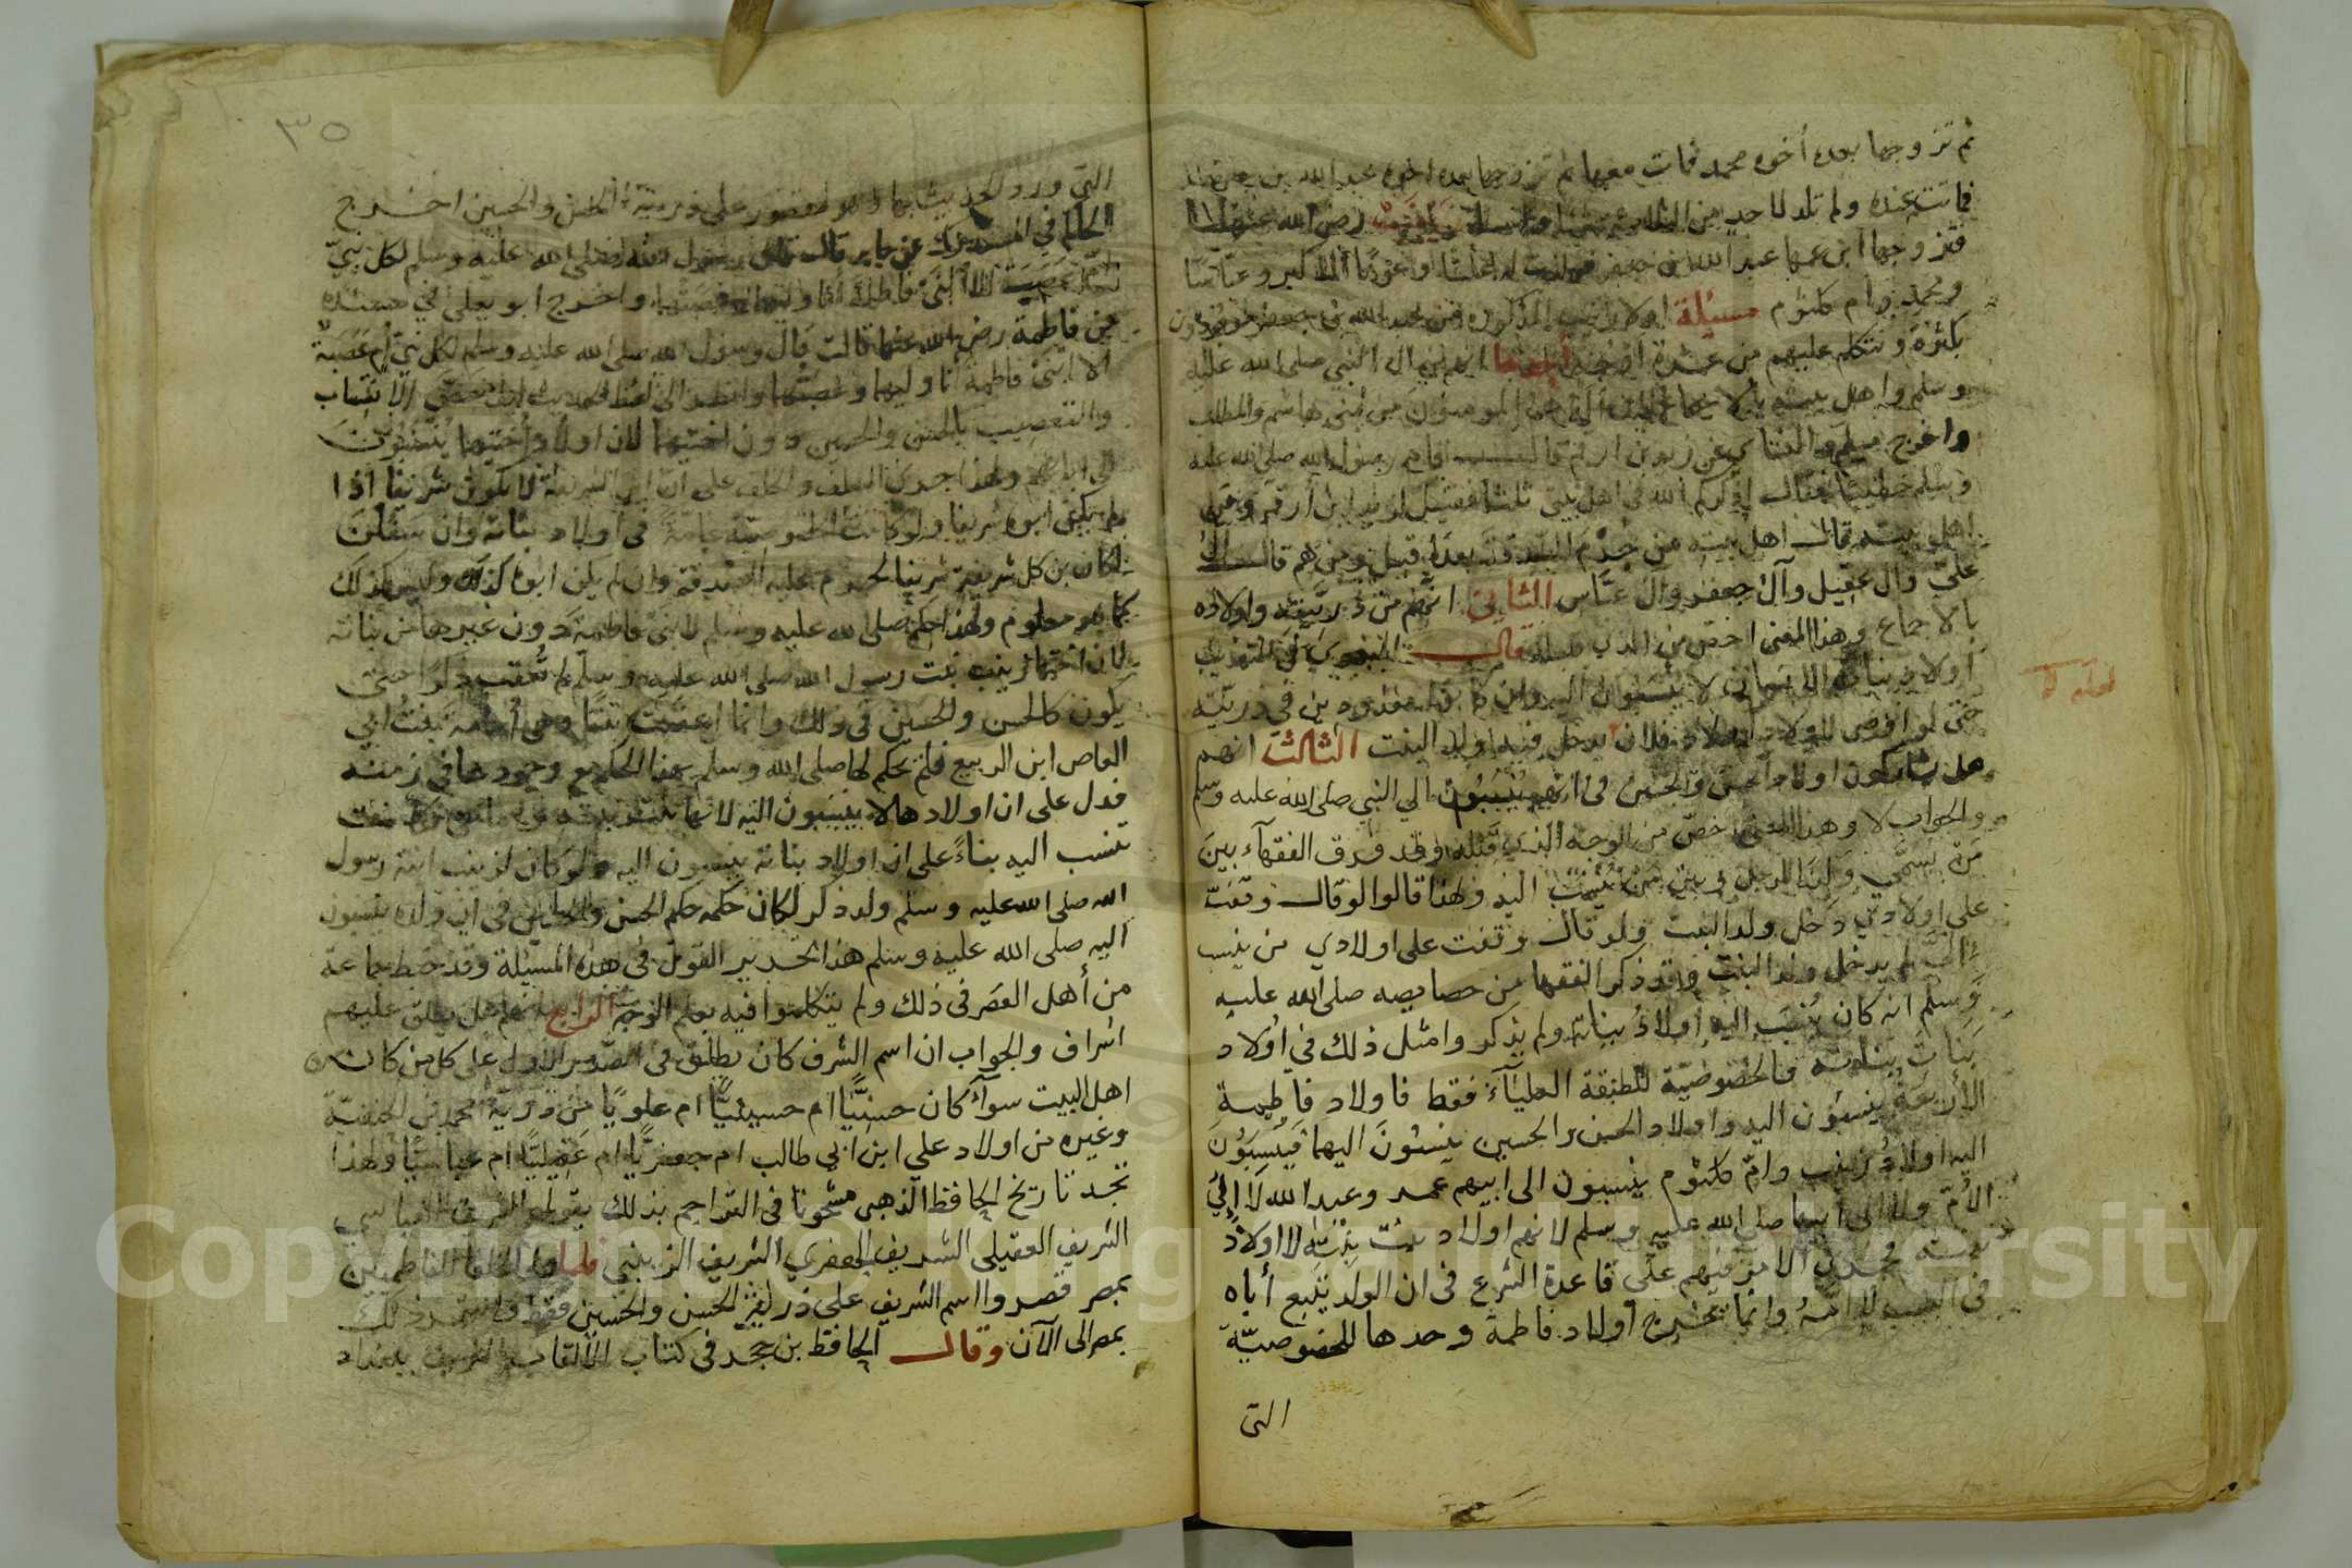 ثم تزوجها بعده أخوه محمد فمات معها ثم تزوجها بعده اخوه عبد الله بن جعفر
فماتت عنده ولم تلد لاحد من الثلاثة شيئا رضي الله عنها
فتزوجها ابن عمها عبد الله بن جعفر فولدت له عليا وعونا الاكبر وعباسا
ومحمد وام كلثوم مسئلة اولاد زينب المذكورة من عبد الله بن جعفر موجودون
بكثرة ونتكلم عليهم من عشرة اوجه احدها انهم من ال النبي صلى الله عليه
وسلم واهل بيته بالاجماع لان اله هم المومنون من بني هاشم والمطلب
واخرج مسلم والنسائي عن زيد بن ارقم قال قام رسول الله صلى الله عليه
وسلم خطيبا فقال اذكركم الله في اهل بيتي ثلثا فقيل لزيد ابن ارقم ومن
اهل بيته قال اهل بيته من حُرِمَ الصدقة بعده قيل ومن هم قال ال
علي وال عقيل وآل جعفر وال عبّاس الثاني انهم من ذريّته واولاده
بالاجماع وهذا المعنى اخص من الذي قبله قال البغوي في التهذيب
أولاد بنات الانسان لا ينسبون اليه وان كانوا معدودين في ذريّته
حتى لو اوصى لاولاد اولاد فلان يدخل فيه ولد البنت الثالث انهم
هل يشاركون اولاد الحسن والحسين في انهم يُنْسَبُون الي النبي صلى الله عليه وسلم
والجواب لا وهذا المعنى اخصّ من الوجه الذي قبله وقد فرق الفقهآء بين
مَن يسمّي ولَدًا للرجل وبين من يُنْسَب اليه ولهذا قالوا لو قال وقفت
على اولادي دخل ولد البنت ولو قال وقفت على اولادي من ينسب
اليَّ لم يدخل ولد البنت وقد ذكر الفقها من خصايصه صلى الله عليه
وَسلم انه كان يُنْسَبُ اليه اولادُ بناته ولم يذكروا مثل ذلك في اولاد
بَنَاتِ بناته فالخصوصيّة للطبقة العليآء فقط فاولاد فاطمة
الأربعة ينسبون اليه واولاد الحسن والحسين ينسبون اليهما فيُنْسَبُونَ
اليه واولادُ زينب وامّ كلثوم ينسبون الى ابيهم عمر وعبد الله لا إليَ
الأمّ ولا الى ابيها صلى الله عليه وسلم لانهم اولاد بنت بنته لا اولادُ
بنته فجرى الامر فيهم على قاعدة الشرع في ان الولد يتبع أباه
في النسب لا امَّهُ وانما خرج أولاد فاطمة وحدها للخصوصيّة
التى
٣٥
التي ورد الحديث بها وهو مقصور على ذرية الحسن والحسين اخرج
الحاكم في المستدرك عن جابر قال قال رسول الله صلى الله عليه وسلم لكل بني
امّ عَصَبَة الا ابنَى فاطمة انا وليهما وعصبتهما واخرج ابو يعلى في مسنده
عن فاطمة رضي الله عنها قالت قال رسول الله صلى الله عليه وسلم لكل بني أُم عَصَبَةٌ
الا ابنَى فاطمة انا وليهما وعصبتهما وانظر الى لفظ الحديث كيف خصّ الانتساب
والتعصيب بالحسن والحسين دون اختيهما لان اولاد أختيهما يُنْسَبُونَ
الى ابائهم ولهذا جرى السلف والخلف على ان ابن الشريفة لا يكون شريفا اذا
لم يكن ابوه شريفا ولو كانت الخصوصية عامة في اولاد بناته وان سَفَلْنَ
لكان بن كل شريفة شريفا لحرم عليه الصدقة وان لم يكن ابوه كذلك وليس كذلك
كما هو معلوم ولهذا حكم صلى الله عليه وسلم لابنَى فاطمة دون غيرها من بناته
لان اختها زينب بنت رسول الله صلى الله عليه وسلم لم تُعْقِب ذكرًا حتى
يكون كالحسن والحسين في ذلك وانما اعقبت بنتا وهي أُمامة بنتُ ابي
العاص ابن الربيع فلم يحكم لها صلى الله وسلم بهذا الحكم مع وجودها في زمنه
فدل على ان اولادها لا ينسبون اليه لانها بنت بنته
تنسب اليه بناءً على ان اولاد بناته ينسبون اليه ولو كان لزينب ابنة رسول
الله صلى الله عليه وسلم ولد ذكر لكان حكمه حكم الحسن والحسين في ان ولده ينسبون
اليه صلى الله عليه وسلم هذا تحرير القول في هذه المسئلة وقد خبط جماعة
من أهل العصر في ذلك ولم يتكلموا فيه بعلم الوجه الرابع انهم هل يطلق عليهم
اشراف والجواب ان اسم الشرف كان يطلق في الصدر الاول على كل من كان من
اهل البيت سوآء كان حسنيًّا ام حسينيًّا ام علويًا من ذرية محمد بن الحنفيّة
وغيره من اولاد علي ابن ابي طالب ام جعفريًّا ام عَقِيليًّا ام عباسيًّا ولهذا
تجد تاريخ الحافظ الذهبى مشحونا في التراجم بذلك يقول الشريف العباسي
الشريف العقيلي الشريف الجعفري الشريف الزينبي فلما ولى الخلفا الفاطميين
بمصر قصروا اسم الشريف على ذرية الحسن والحسين فقط واستمر ذلك
بمصر الى الآن وقال الحافظ بن حجر في كتاب الألقاب الشريف ببغداد
Copyright © King Saud University